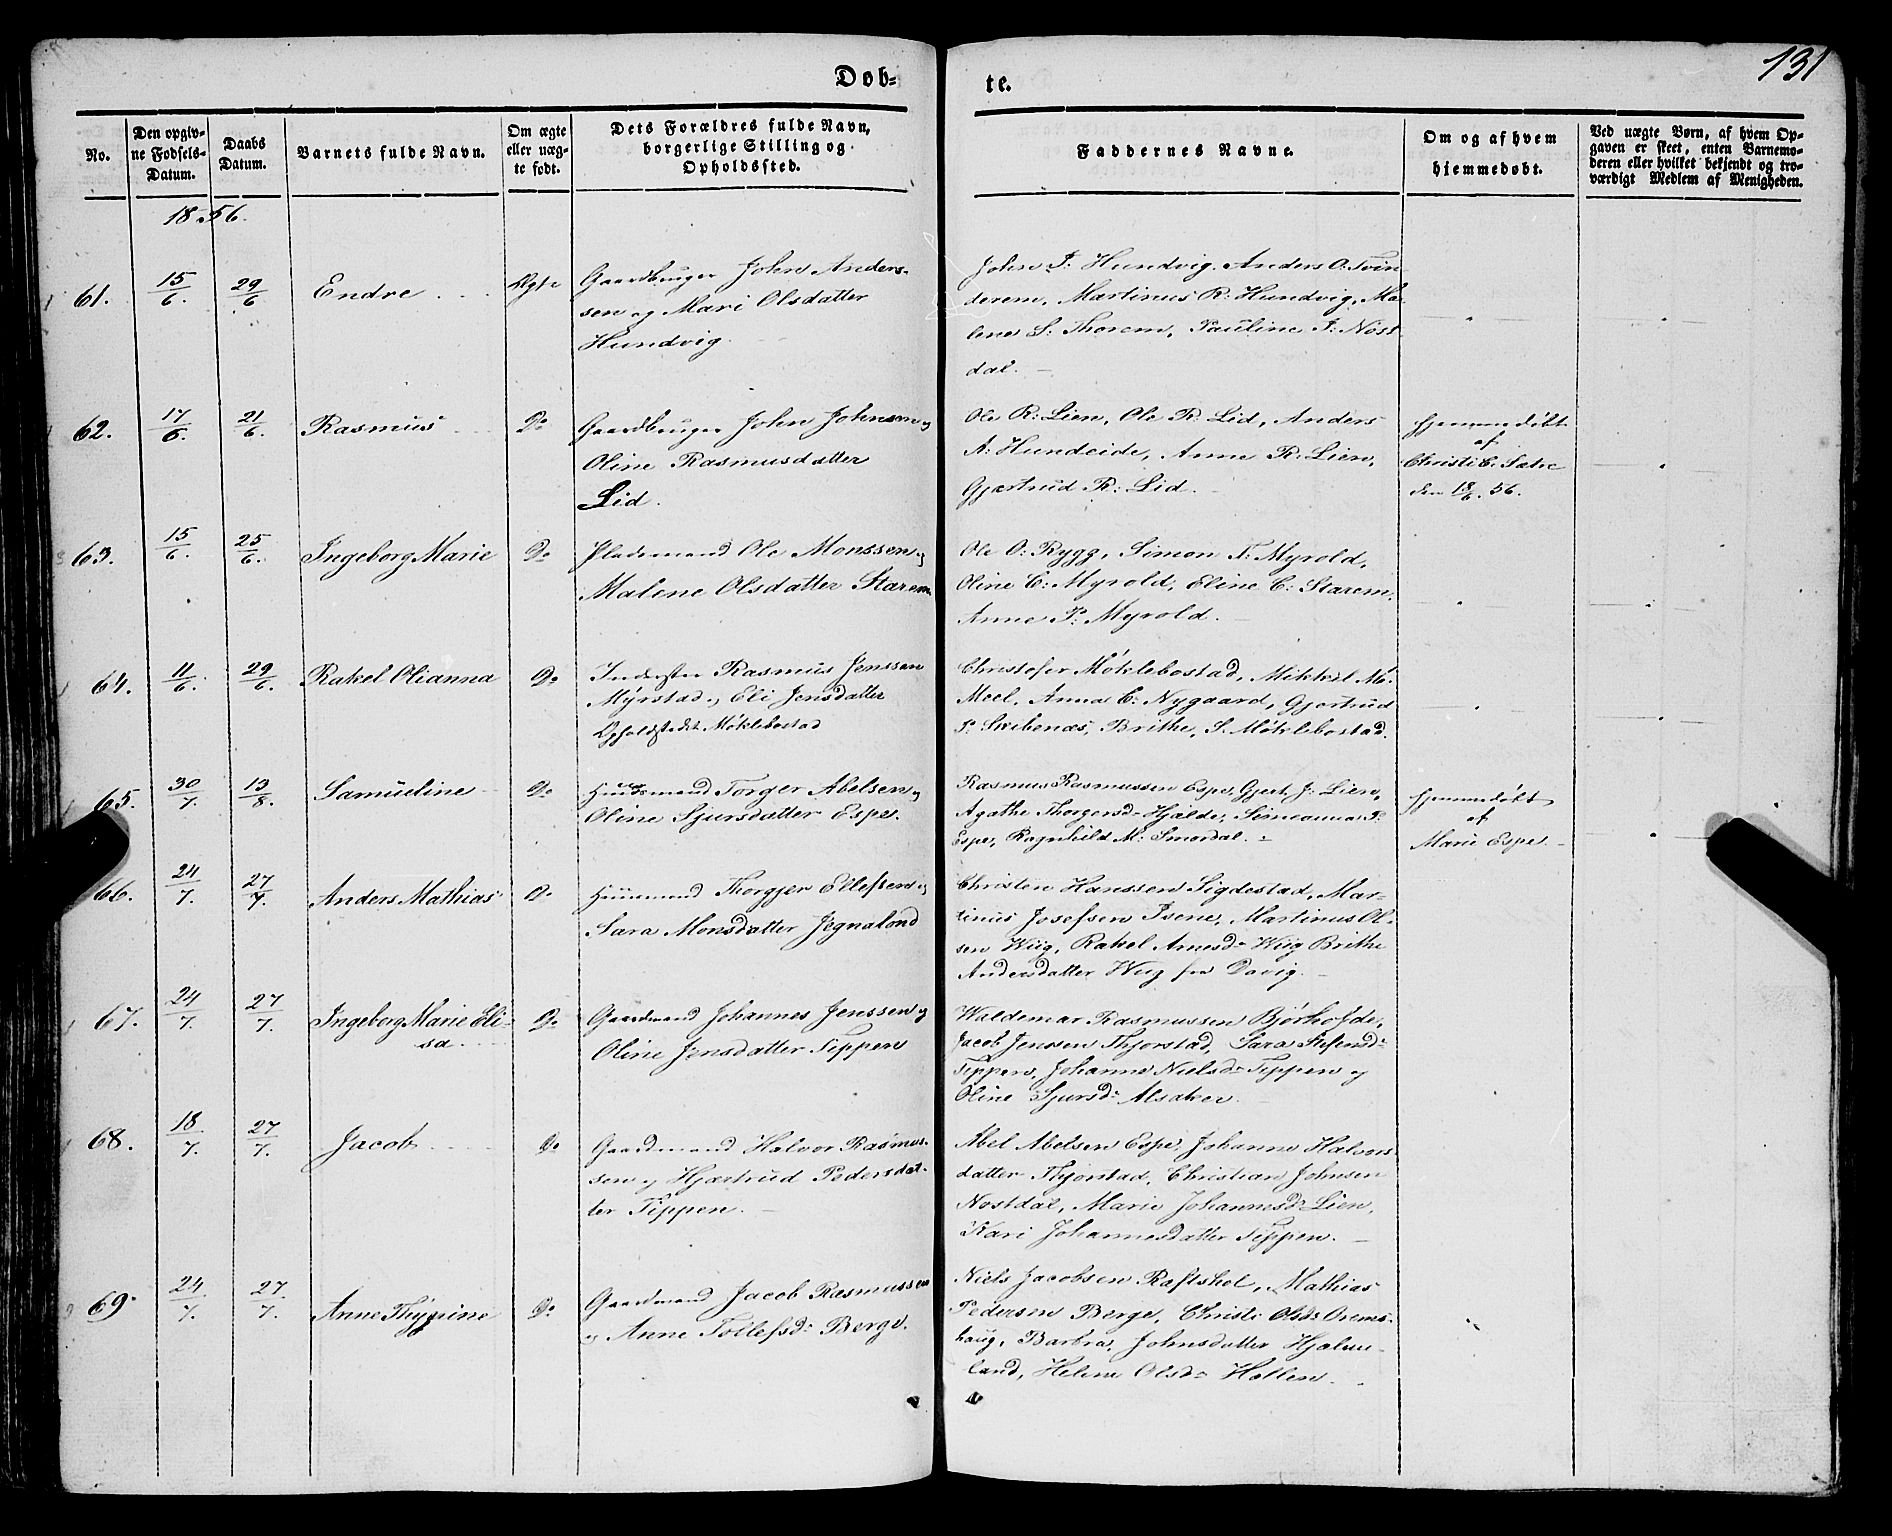 131
Døb-
te.
No.
Den opgiv-
ne Fødsels-
Datum.
Daabs
Datum.
Barnets fulde Navn.
Om ægte
eller uæg-
te født.
Dets Forældres fulde Navn,
borgerlige Stilling og
Opholdssted.
Faddernes Navne.
Om og af hvem
hjemmedøbt.
Ved uægte Børn, af hvem Op-
gaven er skeet, enten Barnemo-
deren eller hvilket bekjendt og tro-
værdigt Medlem af Menigheden.
1856.
61.
15/6.
29/6
Endre
Ægte
Gaardbruger John Anders-
sen og Mari Olsdatter
Hundvig.
John J: Hundvig. Anders O. Tvin-
derem, Martinus R: Hundvig, Ma-
lene S: Thorem, Pauline J: Nøst-
dal.
62.
17/6.
21/6.
Rasmus
Do
Gaardbruger John Johnsen og
Oline Rasmusdatter
Lid.
Ole R: Lien, Ole R: Lid, Anders
A: Hundeide, Anne R: Lien,
Gjertrud R: Lid.
hjemmedøbt
af
Christi C. Sætre
den 18/6. 56.
63.
15/6.
25/6.
Ingeborg Marie
Do
Pladsmand Ole Monssen og
Malene Olsdatter Starem.
Ole O: Rygg, Simon T: Myrold,
Oline C: Myrold, Eline C: Starem.
Anne P: Myrold.
64.
11/6.
29/6.
Rakel Olianna
Do
Inderster Rasmus Jenssen
Myrstad og Eli Jensdatter
Opholdstedt Møklebostad
Christofer Møklebostad, Mikkel M:
Meel, Anna C: Nygaard, Gjertrud
P: Skibenæs, Brithe, S. Møklebostad.
65.
30/7.
13/8.
Samueline
Do
Huusmand Torger Abelsen og
Oline Sjursdatter Espe.
Rasmus Rasmussen Espe, Gjert J: Lien,
Agathe Thorgersd: Hjelde, Simeanna P:
Espe, Ragnhild M: Smordal.
hjemmedøbt
af
Marie Espe.
66.
24/7.
27/7.
Anders Mathias
Do
Huusmand Thorgjer Ellefsen og
Sara Monsdatter Jegnalond
Christen Hanssen Sigdestad, Mar-
tinus Josefsen Isene, Martinus Ol-
sen Wiig, Rakel Arnesd: Wiig Brithe
Andersdatter Wiig fra Davig.
67.
24/7.
27/7.
Ingeborg Marie Eli-
sa
Do
Gaardmand Johannes Jenssen og
Oline Jensdatter Tippen
Waldemar Rasmussen Bjørhofde,
Jacob Jenssen Thjorstad, Sara Stefensd:
Tippen, Johanne Nielsd: Tippen og
Oline Sjursd: Alsaker.
68.
18/7.
27/7.
Jacob
Do
Gaardmand Halvor Rasmus-
sen og Hjertrud Pedersdat-
ter Tippen.
Abel Abelsen Espe, Johanne Halvors
datter Thjorstad, Christian Johnsen
Nostdal, Marie Johannesd: Lien,
Kari Johannesdatter Tippen.
69.
24/7.
27/7.
Anne Thyrine
Do
Gaardmand Jacob Rasmussen
og Anne Tollefsd: Berge.
Niels Jacobsen Raftshol, Mathias
Pedersen Berge, Christi Olsd: Orems-
haug, Barbra, Johnsdatter Hjelme-
land, Helene Olsd: Hollen.